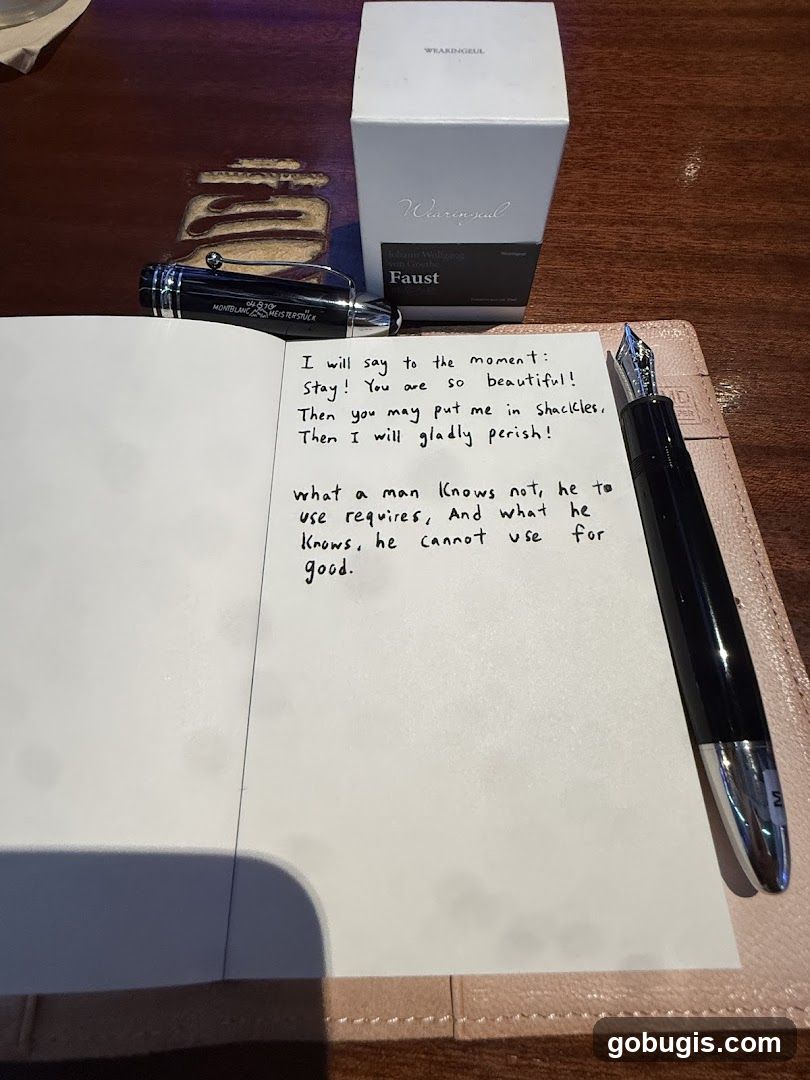 WEARINGEUL
Wearingeul
Johann Wolfgang
von Goethe
Wearingeul
Faust
4810
MONTBLANC MEISTERSTÜCK
I will say to the moment:
Stay! You are so beautiful!
Then you may put me in shackles,
Then I will gladly perish!
what a man knows not, he to
use requires, And what he
knows, he cannot use for
good.
M
gobugis.com